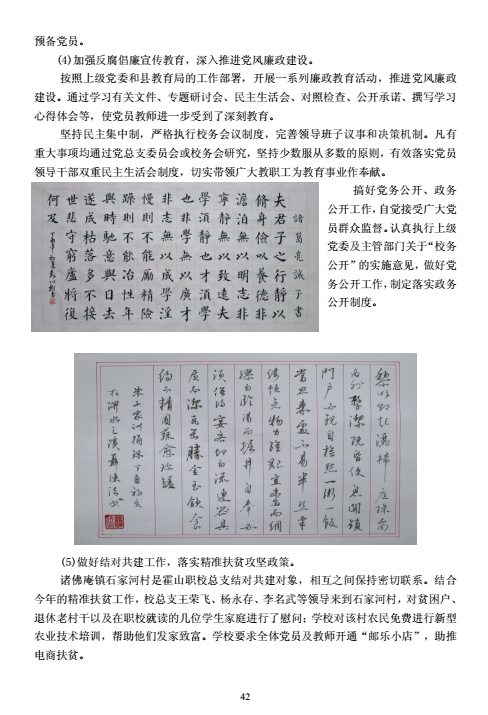 预备党员。
(4)加强反腐倡廉宣传教育，深入推进党风廉政建设。
按照上级党委和县教育局的工作部署，开展一系列廉政教育活动，推进党风廉政
建设。通过学习有关文件、专题研讨会、民主生活会、对照检查、公开承诺、撰写学习
心得体会等，使党员教师进一步受到了深刻教育。
坚持民主集中制，严格执行校务会议制度，完善领导班子议事和决策机制。凡有
重大事项均通过党总支委员会或校务会研究，坚持少数服从多数的原则，有效落实党员
领导干部双重民主生活会制度，切实带领广大教职工为教育事业作奉献。
諸葛亮誡子書
夫君子之行靜以
脩身儉以養德非
澹泊無以明志非
寧靜無以致遠夫
學須靜也才須學
也非學無以廣才
非志無以成學淫
慢則不能勵精險
躁則不能冶性年
與時馳意與日去
遂成枯落多不接
世悲守窮廬將復
何及
搞好党务公开、政务
公开工作,自觉接受广大党
员群众监督。认真执行上级
党委及主管部门关于“校务
公开”的实施意见，做好党
务公开工作,制定落实政务
公开制度。
黎明即起灑掃庭除要
內外整潔既昏便息關鎖
門戶必親自檢點一粥一飯
當思來處不易半絲半
縷恒念物力維艱宜未雨綢
繆勿臨渴而掘井自奉必
須儉約宴客切勿流連器具
質而潔瓦缶勝金玉飲食
約而精園蔬愈珍饈
(5)做好结对共建工作，落实精准扶贫攻坚政策。
诸佛庵镇石家河村是霍山职校总支结对共建对象，相互之间保持密切联系。结合
今年的精准扶贫工作，校总支王荣飞、杨永存、李名武等领导来到石家河村，对贫困户、
退休老村干以及在职校就读的几位学生家庭进行了慰问；学校对该村农民免费进行新型
农业技术培训，帮助他们发家致富。学校要求全体党员及教师开通“邮乐小店”，助推
电商扶贫。
42